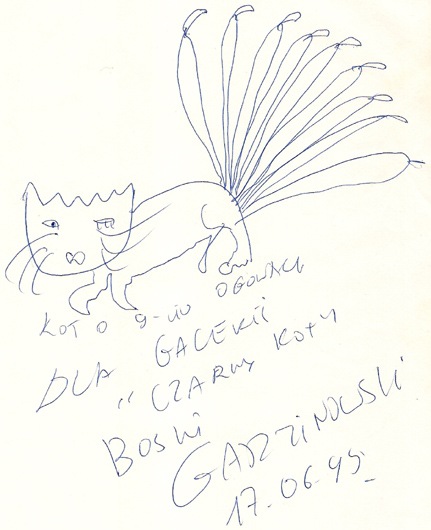 KOT O 9-CIU OGONACH
DLA GALERII
„CZARNY KOT"
BOSKI
GADZINOWSKI
17.06.95